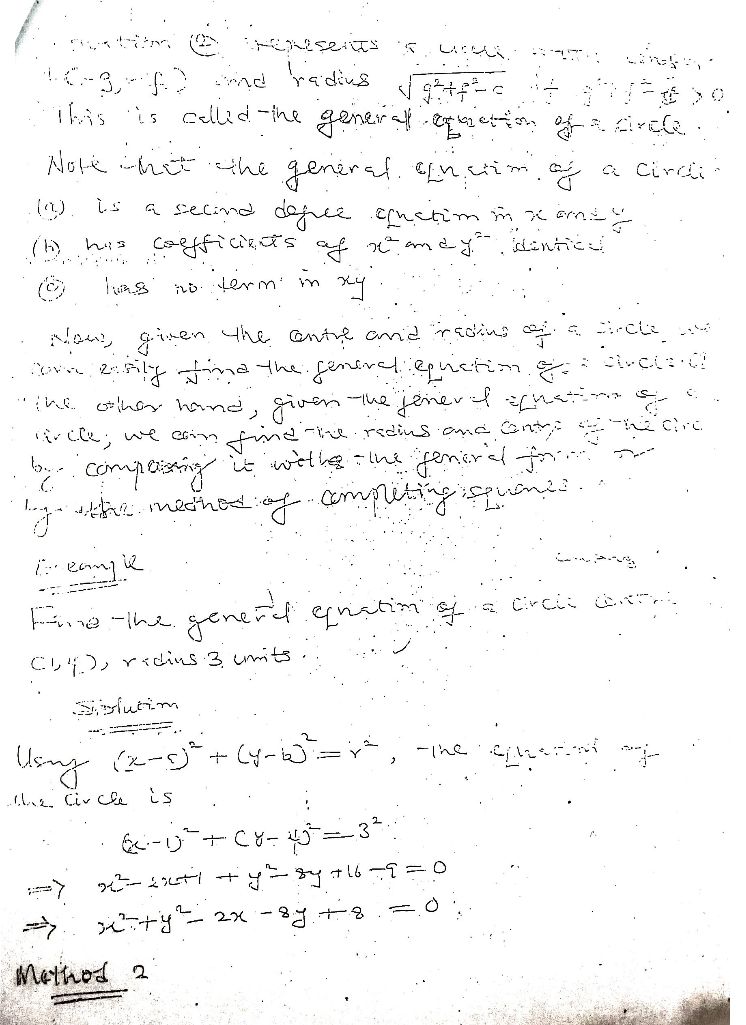 ② represents a circle with
(-g, -f) and radius √g²+f²-c if g²+f²-c > 0
This is called the general equation of a circle.
Note that the general equation of a circle
(a) is a second degree equation in x and y
(b) has coefficients of x² and y² identical
(c) has no term in xy
Now, given the centre and radius of a circle, we
can easily find the general equation of a circle.
the other hand, given the general equation of a
circle, we can find the radius and centre of the circ
by comparing it with the general form or
by the method of completing squares.
Example
Find the general equation of a circle centre
(1,4), radius 3 units.
Solution
Using (x-a)² + (y-b)² = r², the equation of
the circle is
(x-1)² + (y-4)² = 3²
⇒ x²-2x+1 + y²-8y+16-9=0
⇒ x²+y²-2x-8y+8 = 0
Method 2